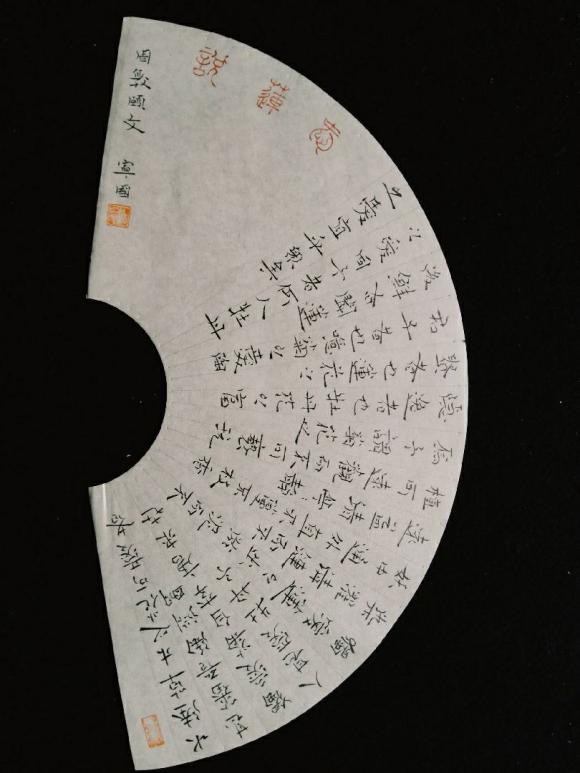 愛蓮説
水陸草木之花可愛者
甚蕃晋陶淵明
獨愛菊自李唐來世
人甚愛牡丹予
獨愛蓮之出淤泥而不
染濯清漣而不
妖中通外直不蔓不枝香
遠益清亭亭淨
植可遠觀而不可褻玩
焉予謂菊花之
隱逸者也牡丹花之富
貴者也蓮花之
君子者也噫菊之愛陶
後鮮有聞蓮
之愛同予者何人牡丹
之愛宜乎衆矣
周敦頤文